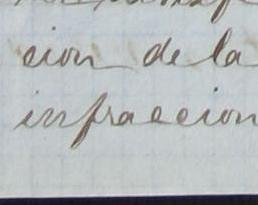 cion de la
infraccion